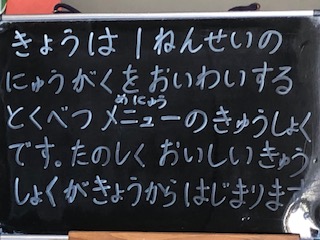 きょうは1ねんせいの
にゅうがくをおいわいする
めにゅう
とくべつメニューのきゅうしょく
です。たのしくおいしいきゅう
しょくがきょうからはじまります